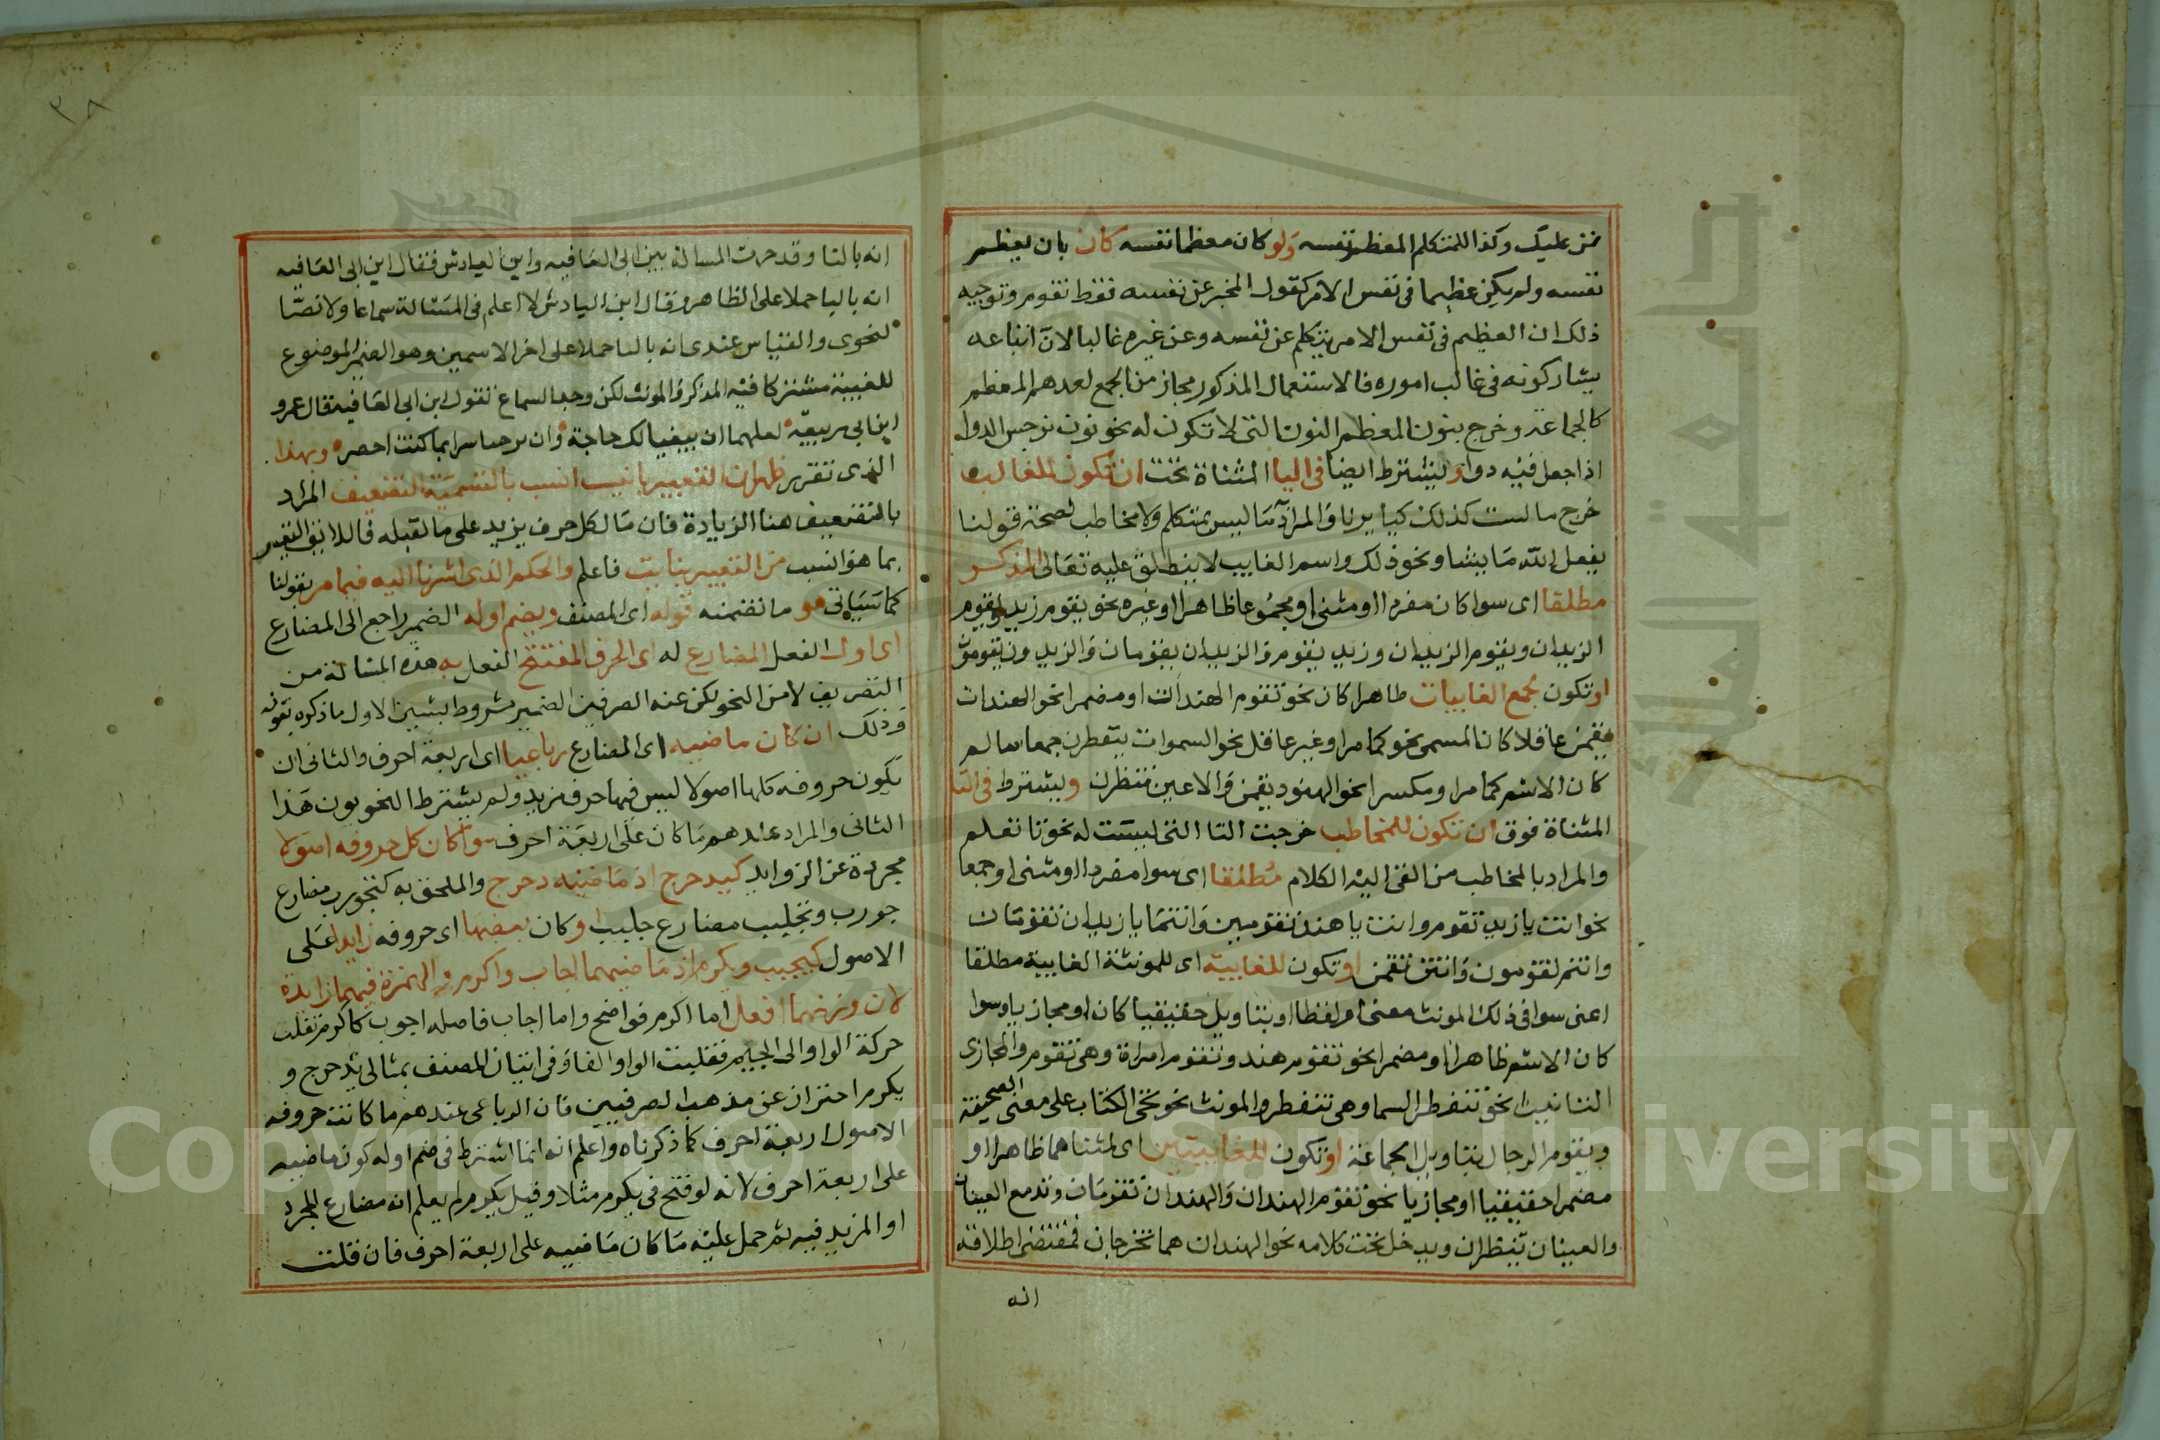 نمن عليك وكذا للمتكلم المعظم نفسه ولو كان معظما نفسه كان بان يعظم
نفسه ولم يكن عظيما في نفس الامر كقول المخبر عن نفسه فقط نقوم وتوجيه
ذلك ان العظيم في نفس الامر يتكلم عن نفسه وعن غيره غالبا لان اتباعه
يشاركونه في غالب اموره فالاستعمال المذكور مجاز من الجمع لعدهم المعظم
كالجماعة وخرج بنون المعظم النون التي لا تكون له نحو نون نرجس الدوا
اذا جعل فيه دوا ويشترط ايضا في اليا المثناة تحت ان تكون للغايب
خرج ما لست كذلك كيا يرنا والمراد ما ليس بمتكلم ولا مخاطب لصحة قولنا
يفعل الله ما يشا ونحو ذلك واسم الغايب لا ينطلق عليه تعالى المذكر
مطلقا اى سوا كان مفردا او مثنى او مجموعا ظاهرا او غيره نحو يقوم زيد ويقوم
الزيدان ويقوم الزيدان وزيد يقوم والزيدان يقومان والزيدون يقومون
او تكون لجمع الغايبات ظاهرا كان نحو تقوم الهندات او مضمرا نحو الهندات
يقمن عاقلا كان المسمى نحو كما مر او غير عاقل نحو السموات يتفطرن جمعا سالم
كان الاسم كما مر او مكسرا نحو الهنود يقمن والاعين تنظرن ويشترط في التا
المثناة فوق ان تكون للمخاطب خرجت التا التي ليست له نحو تا تعلم
والمراد بالمخاطب من القى اليه الكلام مطلقا اى سوا مفردا او مثنى او جمعا
نحو انت يا زيد تقوم وانت يا هند تقومين وانتما يا زيدان تقومان
وانتم تقومون وانتن تقمن او تكون للغايبة اى للمونثة الغايبة مطلقا
اعنى سوا في ذلك المونث معنى او لفظا او بتاويل حقيقيا كان او مجازيا وسوا
كان الاسم ظاهرا او مضمرا نحو تقوم هند وتقوم امراة وهي تقوم والمجازى
التانيث نحو تنفطر السما وهي تنفطر والمونث نحو تجى الكتاب على معنى الصحيفة
وتقوم الرجال بتاويل الجماعة او تكون للغايبتين اى لمثناهما ظاهرا او
مضمرا حقيقيا او مجازيا نحو تقوم الهندان والهندان تقومان وتدمع العينان
والعينان تنظران ويدخل تحت كلامه نحو الهندان هما تخرجان فمقتضى اطلاقه
انه
٣٨
انه بالتا وقد جرت المسالة بين ابى العافيه وابن الباذش فقال ابن ابى العافيه
انه باليا حملا على الظاهر وقال ابن الباذش لا اعلم في المسئالة سماعا ولا نصا
لنحوى والقياس عندى انه بالتا حملا على اخر الاسمين وهو الضمير الموضوع
للغيبة مشتركا فيه المذكر والمونث لكن وجد السماع نقول ابن ابى العافيه قال عمرو
ابن ابى ربيعة لعلهما ان يبغيا لك حاجة وان يرحبا سرا بما كنت احصر وبهذا
الذى تقرر ظهران التعبير بانيت انسب بالتسمية التضعيف المراد
بالتضعيف هنا الزيادة فان مالكل حرف يزيد على ما قبله فاللايق التعبير
بما هو انسب من التعبير بنايت فاعلم والحكم الذى اشرنا اليه فيما مر بقولنا
كما سياتى هو ما تضمنه قوله اى المصنف ويضم اوله الضمير راجع الى المضارع
اى اول الفعل المضارع له اى الحرف المفتتح الفعل به هذه المسئالة من
التصريف لا من النحو لكن عند الصرفين الضمير مشروط بشيين الاول ما ذكره بقوله
وذلك ان كان ماضيه اى المضارع رباعيا اى اربعة احرف والثانى ان
تكون حروفه كلها اصولا ليس فيها حرف مزيد ولم يشترط النحويون هذا
الثانى والمراد عندهم ما كان على اربعة احرف سوا كان كل حروفه اصولا
مجردة عن الزوايد كيدحرج اذ ماضيه دحرج والملحق به كتجورب مضارع
جورب وتجلبب مضارع جلبب او كان بعضها اى حروفه زايدا على
الاصول كيجيب ويكرم اذ ماضيهما اجاب واكرم والهمزة فيهما زايدة
لان وزنهما افعل اما اكرم فواضح واما اجاب فاصله اجوب كاكرم نقلت
حركة الواو الى الجيم فقلبت الواو الفا وفى اتيان المصنف بمثالى يدحرج و
يكرم احتراز عن مذهب الصرفيين فان الرباعى عندهم ما كانت حروفه
الاصول اربعة احرف كما ذكرناه واعلم انه انما اشترط فى ضم اوله كون ماضيه
على اربعة احرف لانه لو فتح فى يكرم مثلا وقيل يكرم لم يعلم انه مضارع المجرد
او المزيد فيه ثم حمل عليه ما كان ماضيه على اربعة احرف فان قلت
Copyright © King Saud University